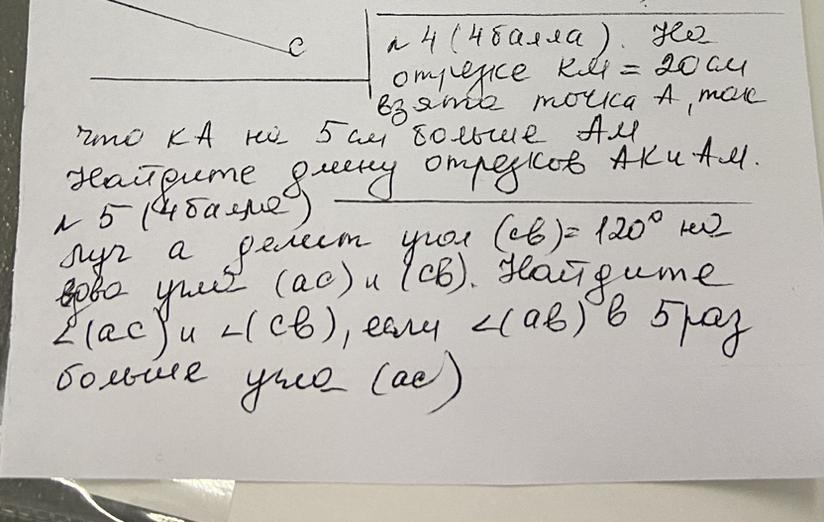 с
№ 4 (4 балла). На
отрезке КМ = 20 см
взята точка А, так
что КА на 5 см больше АМ
Найдите длину отрезков АК и АМ.
№ 5 (4 балла)
луч а делит угол (св) = 120° на
два угла (ас) и (св). Найдите
∠(ас) и ∠(св), если ∠(ав) в 5 раз
больше угла (ас)